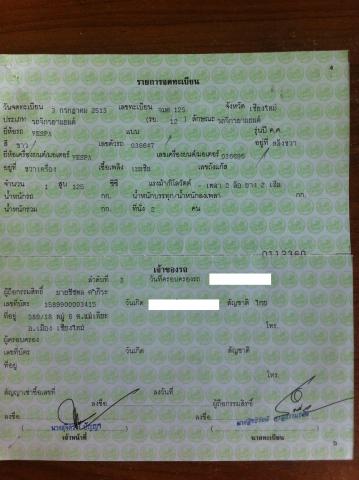 4
รายการจดทะเบียน
วันจดทะเบียน 3 กรกฎาคม 2513 เลขทะเบียน จังหวัด เชียงใหม่
ประเภท รถจักรยานยนต์ (รย. 12) ลักษณะ รถจักรยานยนต์
ยี่ห้อรถ VESPA แบบ รุ่นปี ค.ศ.
สี ขาว เลขตัวรถ 036647 อยู่ที่ หลังขวา
ยี่ห้อเครื่องยนต์/มอเตอร์ VESPA เลขเครื่องยนต์/มอเตอร์ 036695
อยู่ที่ ขวาเครื่อง เชื้อเพลิง เบนซิน เลขถังแก๊ส
จำนวน 1 สูบ 125 ซีซี แรงม้า/กิโลวัตต์ - เพลา 2 ล้อ ยาง 2 เส้น
น้ำหนักรถ กก. น้ำหนักบรรทุก/น้ำหนักลงเพลา กก.
น้ำหนักรวม กก. ที่นั่ง 2 คน
0112360
เจ้าของรถ
ลำดับที่ 3 วันที่ครอบครองรถ
ผู้ถือกรรมสิทธิ์
เลขที่บัตร 1589900003415 วันเกิด สัญชาติ ไทย
ที่อยู่ 389/18 หมู่ 6
อ.เมือง เชียงใหม่ โทร.
ผู้ครอบครอง
เลขที่บัตร วันเกิด สัญชาติ
ที่อยู่
โทร.
สัญญาเช่าซื้อเลขที่ ลงวันที่
ลงชื่อ ผู้ถือกรรมสิทธิ์
ลงชื่อ ลงชื่อ
เจ้าหน้าที่ นายทะเบียน
5